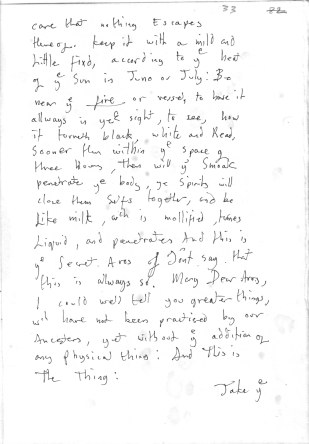 33
care that nothing Escapes
thereof. keep it with a mild and
little fixd, according to yᵉ heat
of yᵉ Sun in June or July: Be
near yᵉ fire or vessel, to have it
always in yᵉ sight, to see, how
it turneth black, white and Read,
Sooner then within yᵉ space of
three hours, then will yᵉ Smoak
penetrate yᵉ body, yᵉ Spirits will
close them Selfs together, and be
Like milk, wᶜʰ is mollified,
Liquid, and penetrates And this is
yᵉ Secret. Aros I Dont say that
this is always so. Mary Dear Aros,
I could well tell you greater things,
wᶜʰ have not been practised by our
Ancesters, yet without yᵉ addition of
any physical thing: And This is
The Thing:
Take yᵉ